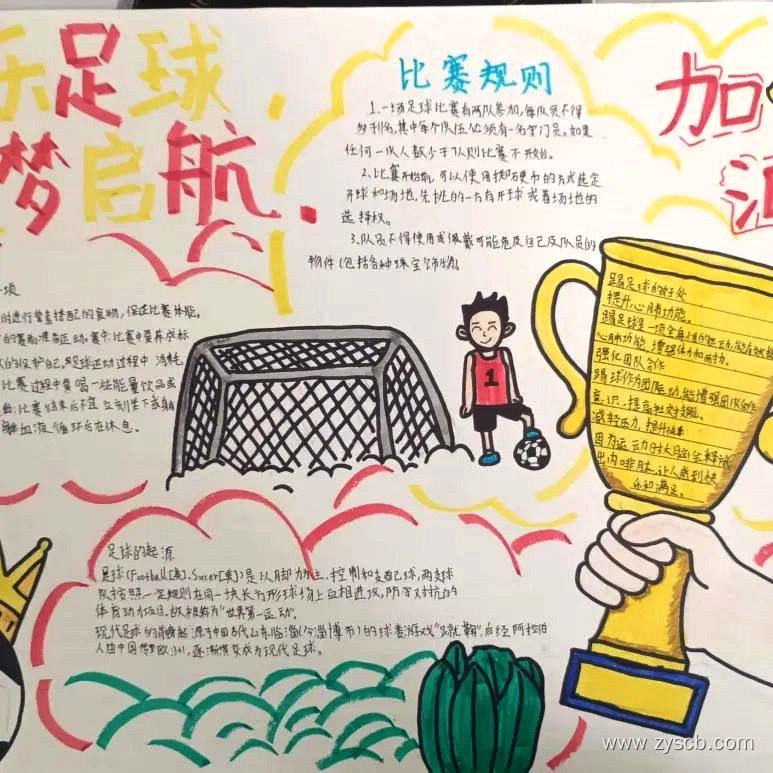 乐足球
梦启航.
比赛规则
1.一场足球比赛有两队参加,每队员不得
名,其中每个队伍必须有一名守门员。如果
任何一队人数少于7人则比赛不开始。
2.比赛开始前,可以使用掷硬币的方式选定
开球和场地,先挑的一方有开球或着场地的
选择权。
3.队员不得使用或佩戴可能危及自己及队员的
物件(包括各种珠宝饰物)。
加
项
时进行营养搭配的食物,保证比赛体能。
的赛前准备运动。赛中:比赛中要养成标
的保护自己,足球运动过程中消耗
比赛过程中要喝一些能量饮品或
比赛结束后不宜立刻坐下或躺
血液循环后在休息。
踢足球的好处
提升心肺功能。
踢足球是一项全身性的运动,能有效提
心肺功能,增强体力和耐力。
强化团队合作
踢球作为团队运动,能增强团队合作
意识,提高社交技能。
减轻压力,提升
因为运动时大脑会释放
出内啡肽,让人感到快
乐和满足。
足球的起源
足球(Football[英],Soccer[美])是以脚为主,控制和支配球,两支球
队按照一定规则在同一块长方形球场上互相进攻,防守对抗的
体育动项目,故被称为"世界第一运动"。
现代足球的前身起源于中国古代山东临淄(今淄博市)的球类游戏"蹴鞠",后经阿拉伯
人由中国传至欧洲,逐渐演变成为现代足球。
1
www.zyscb.com